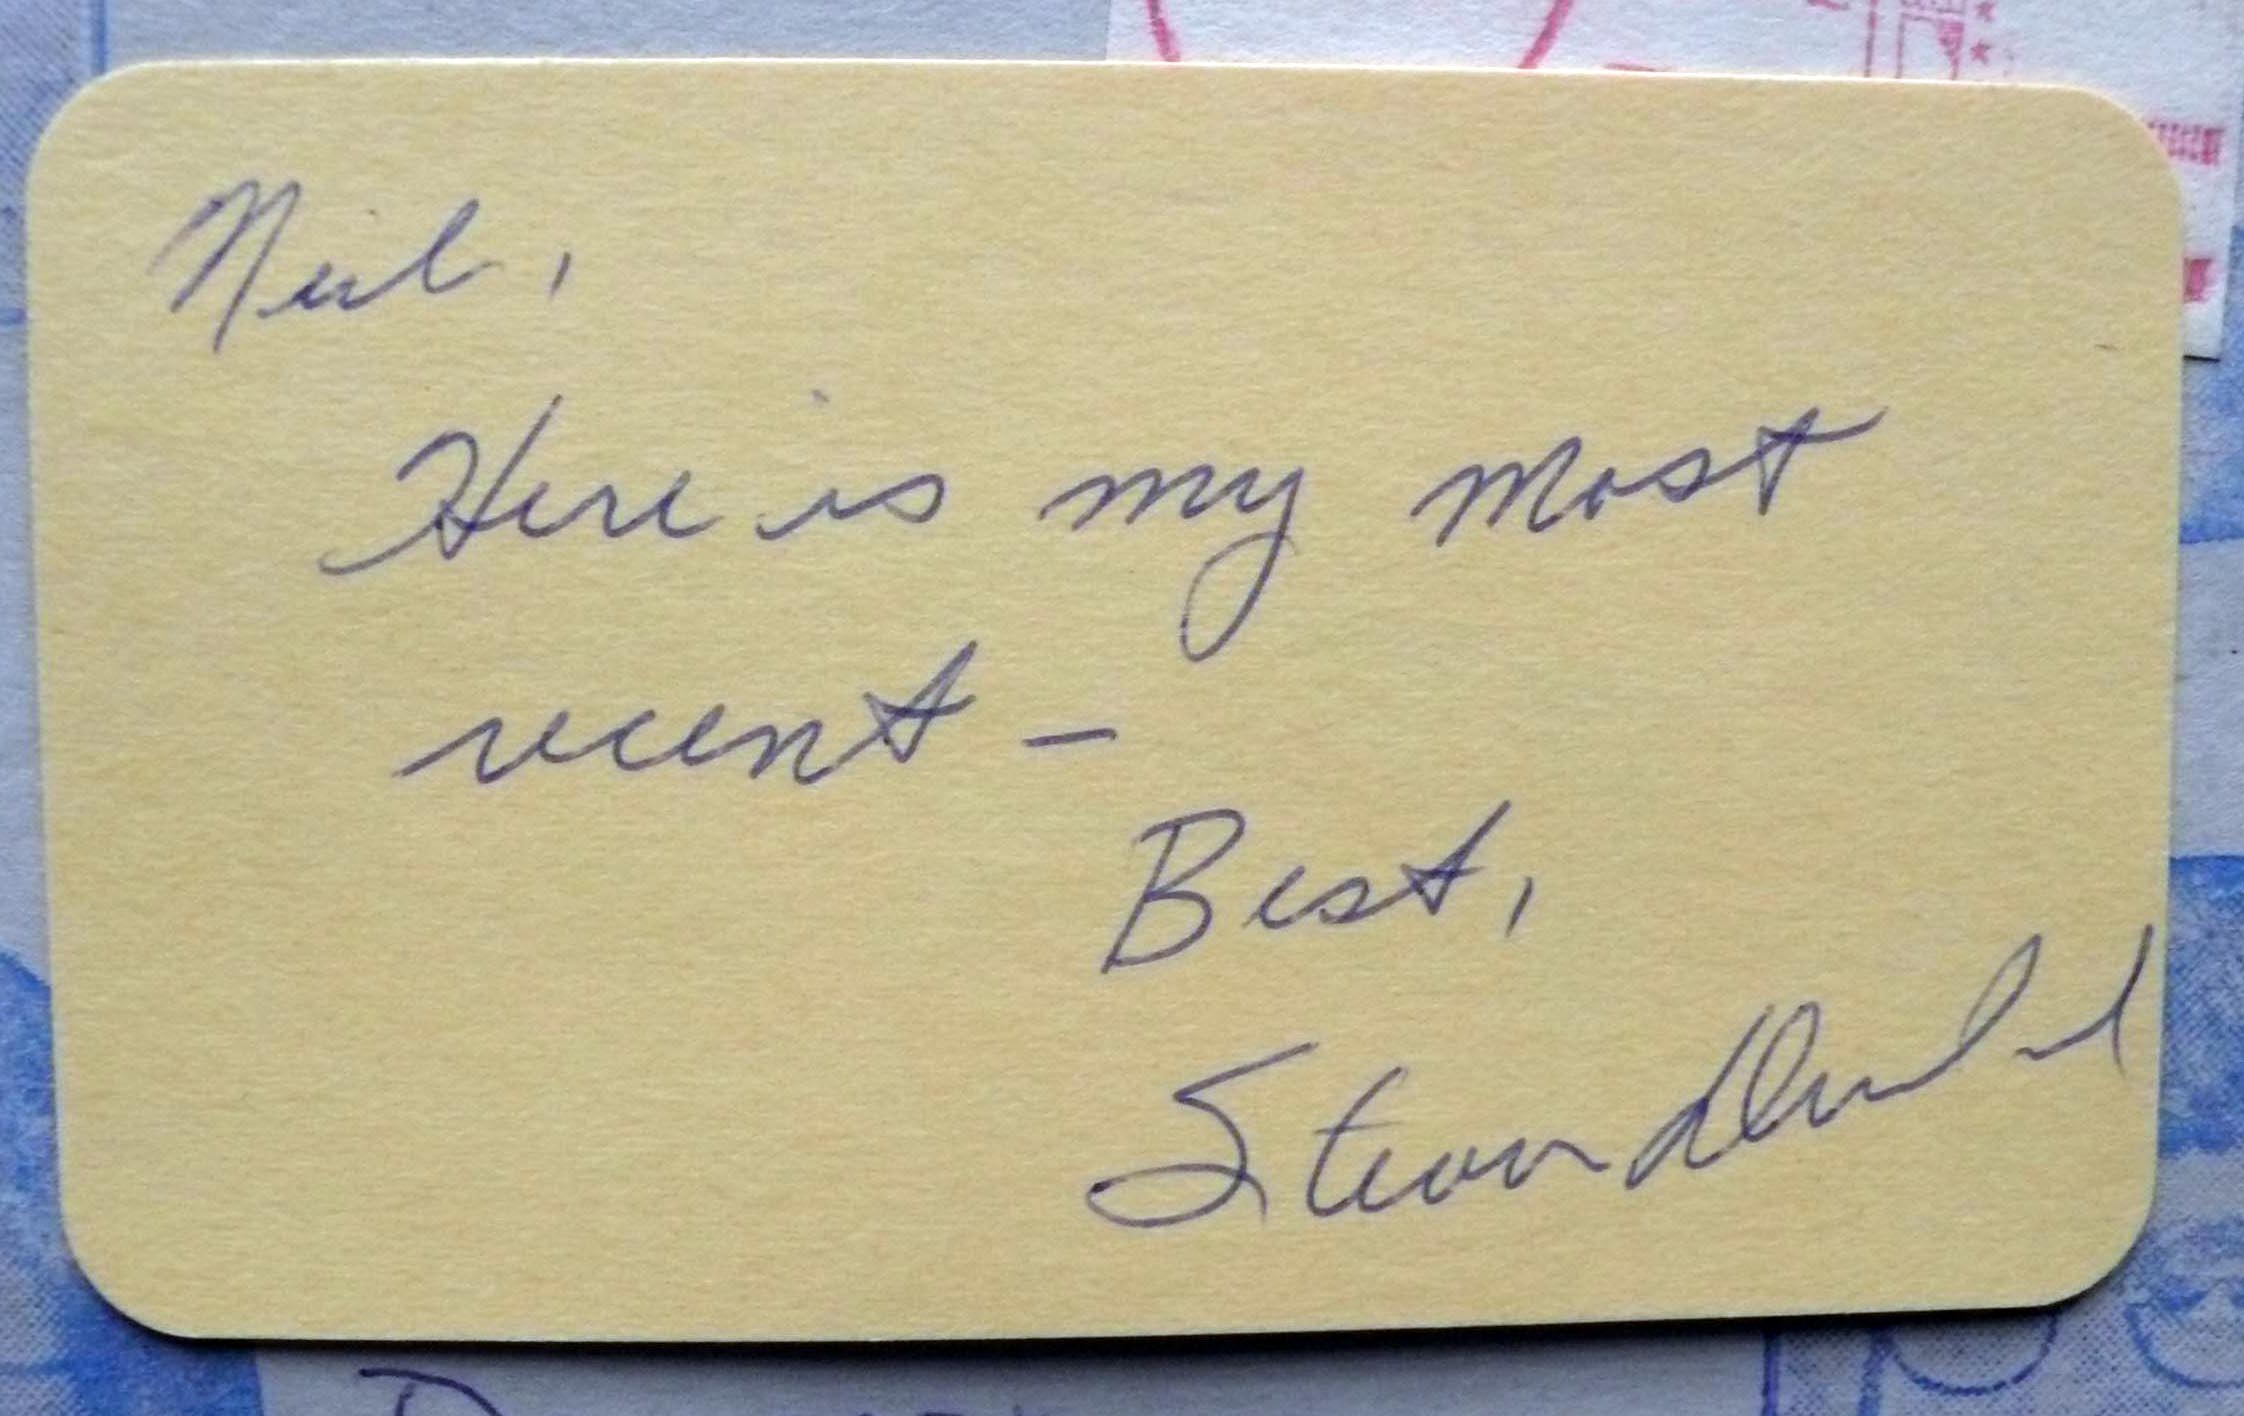 Neil,
Here is my most
recent –
Best,
Steven